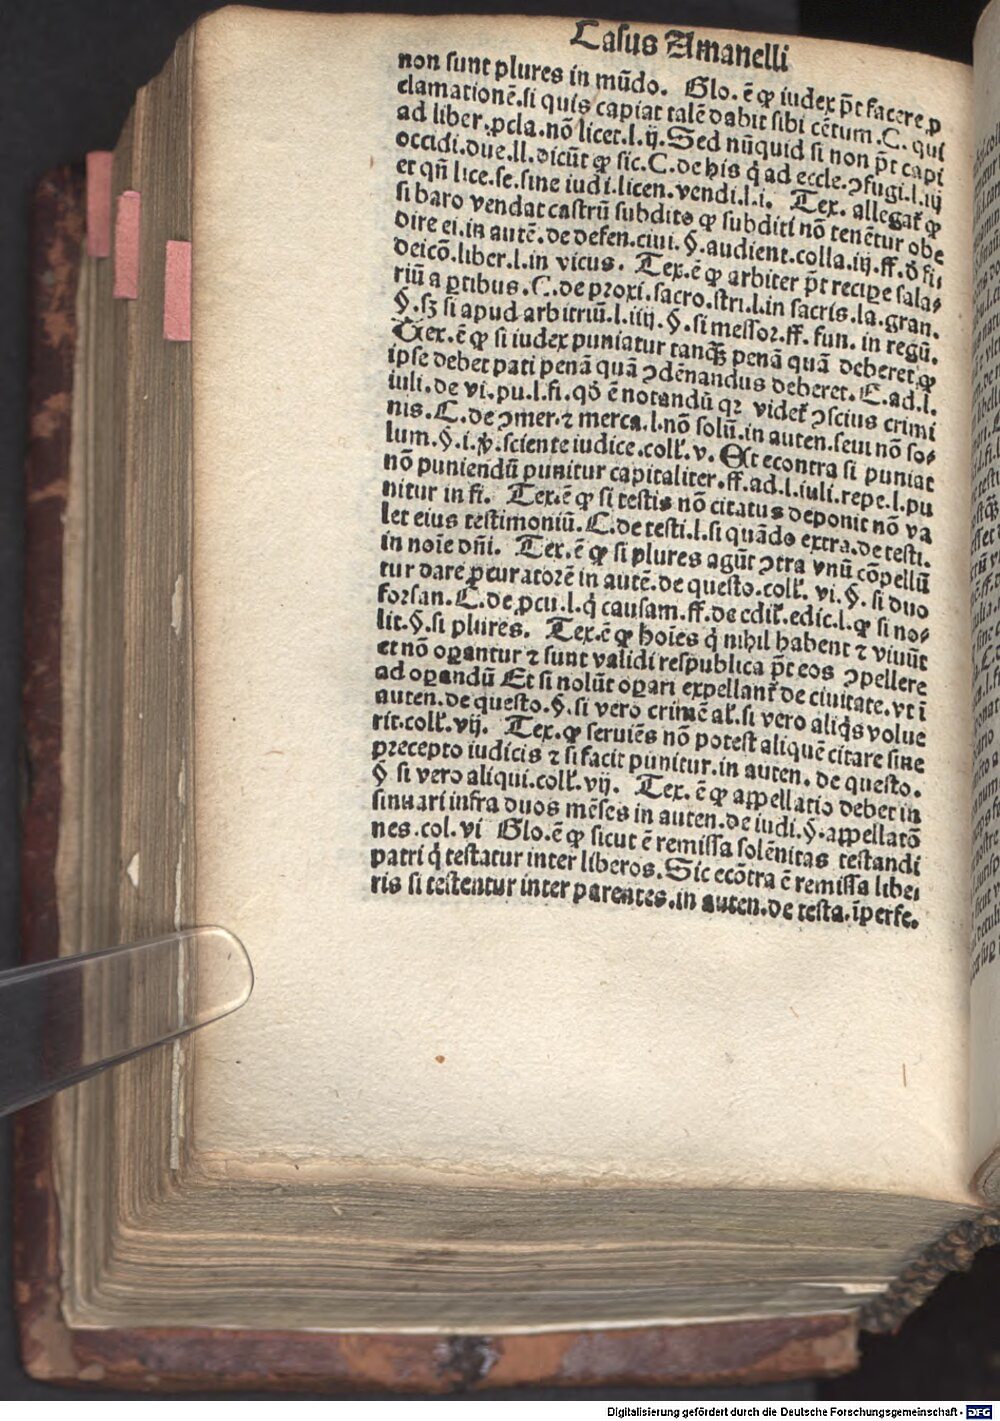 Casus Amanelli
non sunt plures in mūdo. Glo. ē ꝙ iudex p̄t facere ꝓ
clamationē. si quis capiat talē dabit sibi cētum. C. qui
ad liber. ꝓcla. nō licet. l. ij. Sed nūquid si non p̄t capi
occidi. due. ll. dicūt ꝙ sic. C. de his q̇ ad eccle. ꝯfugi. l. iij
et qn̄ lice. se. sine iudi. licen. vendi. l. i. Tex. allegat̄ ꝙ
si baro vendat castrū subdito ꝙ subditi nō tenētur obe
dire ei. in autē. de defen. ciui. §. audient. colla. iij. ff. ď fi-
deicō. liber. l. in vicus. Tex. ē ꝙ arbiter p̄t recipe sala-
riū a ꝑtibus. C. de proxi. sacro. scri. l. in sacris. la. gran.
§. sꝫ si apud arbitriū. l. iiij. §. si messor. ff. fun. in regū.
Tex. ē ꝙ si iudex puniatur tanqꝫ penā quā deberet ꝙ
ipse debet pati penā quā ꝯdēnandus deberet. C. ad. l.
iuli. de vi. pu. l. fi. qď ē notandū qꝛ videt̄ ꝯscius crimi
nis. C. de ꝯmer. ⁊ merca. l. nō solū. in auten. seui nō so-
lum. §. i. ꝟ. sciente iudice. coll̄. v. Et econtra si puniat
nō puniendū punitur capitaliter. ff. ad. l. iuli. repe. l. pu
nitur in fi. Tex. ē ꝙ si testis nō citatus deponit nō va
let eius testimoniū. C. de testi. l. si quādo extra. de testi.
in noīe dn̄i. Tex. ē ꝙ si plures agūt ꝯtra vnū cōpellū
tur dare ꝓcuratorē in autē. de questo. coll̄. vi. §. si duo
forsan. C. de ꝓcu. l. q̇ causam. ff. de edil̄. edic. l. ꝙ si no-
lit. §. si plures. Tex. ē ꝙ hoīes q̇ nihil habent ⁊ viuūt
et nō oꝑantur ⁊ sunt validi respublica p̄t eos ꝯpellere
ad oꝑandū Et si nolūt oꝑari expellant̄ de ciuitate. vt ī
auten. de questo. §. si vero crimē al̄. si vero aliq̇s volue
rit. coll̄. vij. Tex. ꝙ seruiēs nō potest aliquē citare sine
precepto iudicis ⁊ si facit punitur. in auten. de questo.
§ si vero aliqui. coll̄. vij. Tex. ē ꝙ appellatio debet in
sinuari infra duos mēses in auten. de iudi. §. appellatō
nes. col. vi Glo. ē ꝙ sicut ē remissa solēnitas testandi
patri q̇ testatur inter liberos. Sic ecōtra ē remissa libe-
ris si testentur inter parentes. in auten. de testa. īperfe.
Digitalisierung gefördert durch die Deutsche Forschungsgemeinschaft - DFG